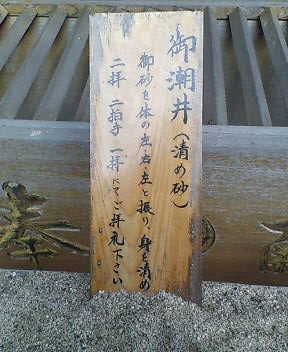 御潮井（清め砂）
御砂を体の左・右・左と振り、身を清め
二拝 二拍手 一拝にてご拝礼下さい